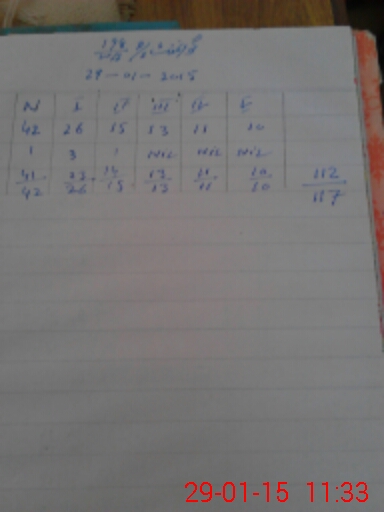 29-01-2015
N I II III IV V
42 26 15 13 11 10
1 3 1 Nil Nil Nil
41/42 23/26 14/15 13/13 11/11 10/10 112/117
29-01-15 11:33